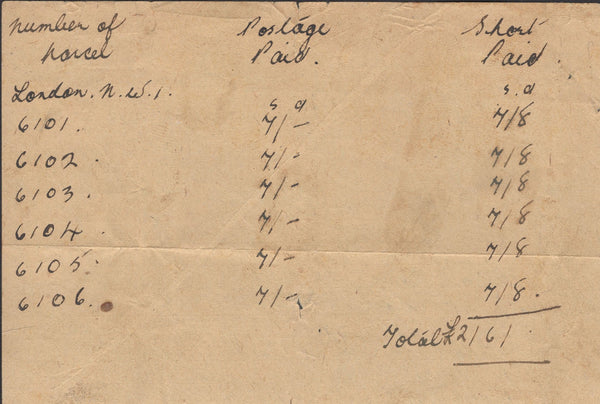 number of Postage Short
parcel Paid. Paid.
London. N.W.1. s d s.d
6101. 7/- 7/8
6102. 7/- 7/8
6103. 7/- 7/8
6104. 7/- 7/8
6105. 7/- 7/8
6106. 7/- 7/8.
Total £2/6/.